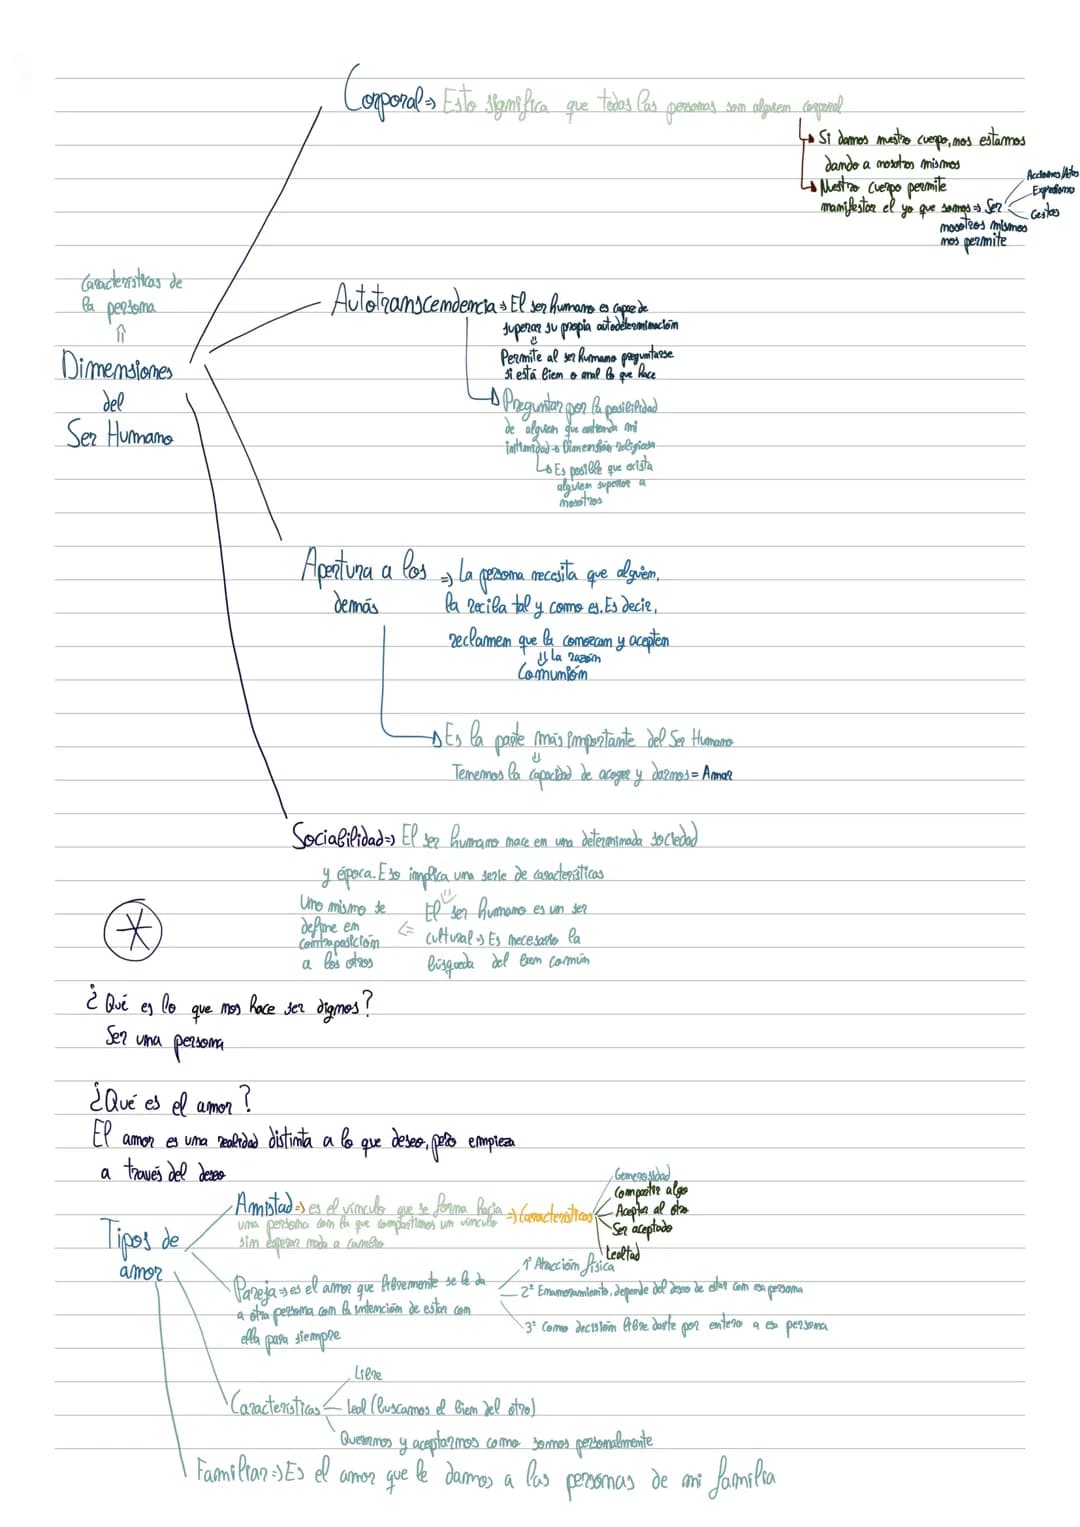 Corporal => Esto significa que todas las personas son alguien corporal
Si damos nuestro cuerpo, nos estamos
dando a nosotros mismos
Nuestro cuerpo permite
manifestar el yo que somos => Ser
nosotros mismos
nos permite
Acciones/Actos
Expresiones
Gestos
Características de
la persona
⇑
Dimensiones
del
Ser Humano
Autotranscendencia => El ser humano es capaz de
superar su propia autodeterminación
⇓
Permite al ser humano preguntarse
si está bien o mal lo que hace
Preguntar por la posibilidad
de alguien que entienda mi
intimidad -> Dimensión religiosa
Es posible que exista
alguien superior a
nosotros
Apertura a los
demás
=> La persona necesita que alguien,
la reciba tal y como es. Es decir,
reclamen que la conozcan y acepten
⇓ La razón
Comunión
Es la parte más importante del Ser Humano
⇓
Tenemos la capacidad de acoger y darnos = Amor
Sociabilidad => El ser humano nace en una determinada sociedad
y época. Eso implica una serie de características
⇓
El ser humano es un ser
cultural -> Es necesario la
búsqueda del bien común
<=
Uno mismo se
define en
contraposición
a los otros
*
¿Qué es lo que nos hace ser dignos?
Ser una persona
¿Qué es el amor?
El amor es una realidad distinta a lo que deseo, pero empieza
a través del deseo
Tipos de
amor
Amistad => es el vínculo que se forma hacia
una persona con la que compartimos un vínculo
sin esperar nada a cambio
=> Características
Generosidad
Compartir algo
Aceptar al otro
Ser aceptado
Lealtad
Pareja => es el amor que libremente se le da
a otra persona con la intención de estar con
ella para siempre
1º Atracción física
2º Enamoramiento, depende del deseo de estar con esa persona
3º Como decisión libre darte por entero a esa persona
Características
Libre
Leal (buscamos el bien del otro)
Querernos y aceptarnos como somos personalmente
Familiar => Es el amor que le damos a las personas de mi familia